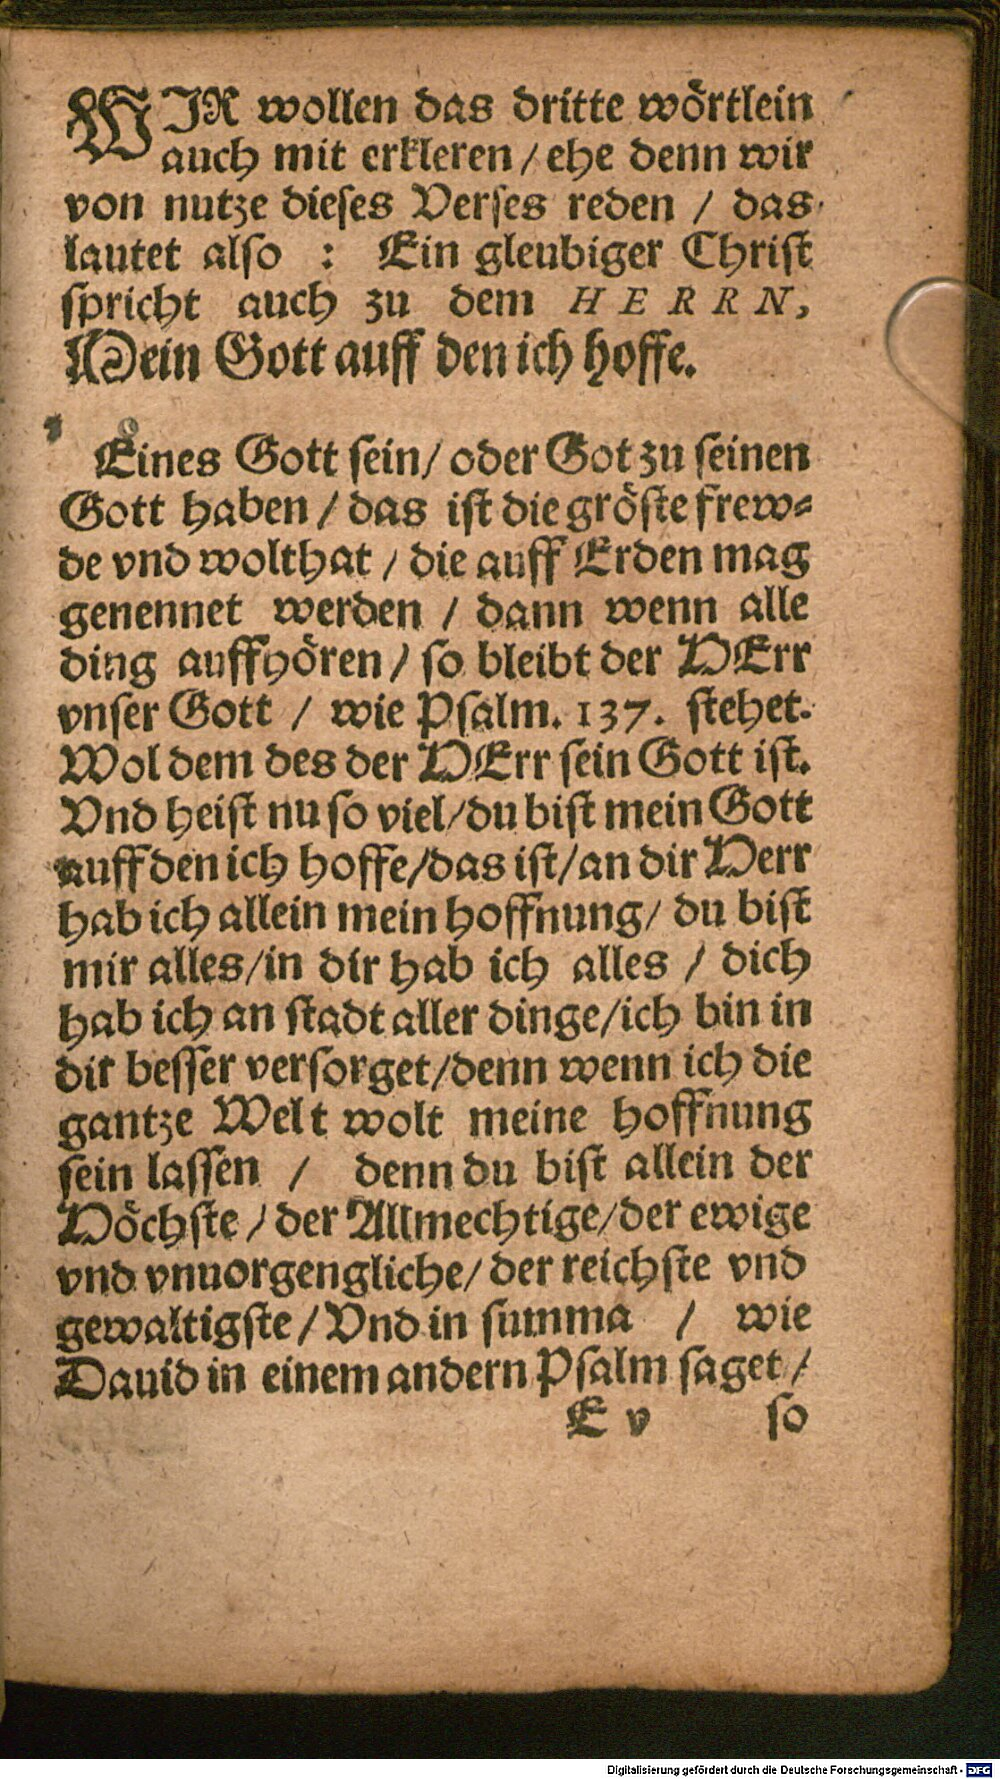 WIR wollen das dritte wörtlein
auch mit erkleren / ehe denn wir
von nutze dieses Verses reden / das
lautet also : Ein gleubiger Christ
spricht auch zu dem HERRN,
Mein Gott auff den ich hoffe.
Eines Gott sein / oder Got zu seinen
Gott haben / das ist die gröste frew⸗
de vnd wolthat / die auff Erden mag
genennet werden / dann wenn alle
ding auffhören / so bleibt der HErr
vnser Gott / wie Psalm. 137. stehet.
Wol dem des der HErr sein Gott ist.
Vnd heist nu so viel / du bist mein Gott
auff den ich hoffe / das ist / an dir Herr
hab ich allein mein hoffnung / du bist
mir alles / in dir hab ich alles / dich
hab ich an stadt aller dinge / ich bin in
dir besser versorget / denn wenn ich die
gantze Welt wolt meine hoffnung
sein lassen / denn du bist allein der
Höchste / der Allmechtige / der ewige
vnd vnuorgengliche / der reichste vnd
gewaltigste / Vnd in summa / wie
Dauid in einem andern Psalm saget /
E v so
Digitalisierung gefördert durch die Deutsche Forschungsgemeinschaft - DFG